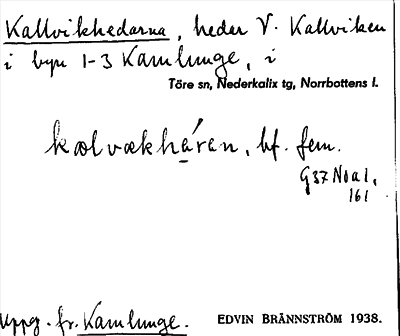 Kallvikhedarna, heder V. Kallviken
i byn 1-3 Kamlunge, i
Töre sn, Nederkalix tg, Norrbottens l.
kælvækháran, bf. fem.
G37 Noa1,
161
Uppg. fr. Kamlunge.
EDVIN BRÄNNSTRÖM 1938.